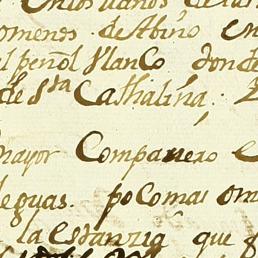 en los llanos de la
omenos. de Abino en
el peñol blanco donde
de Sta Cathalina.
mayor Companero e
leguas. poco mas om
la estanzia que